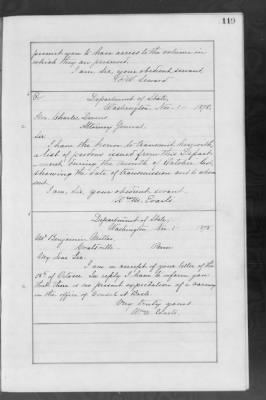 119
permit you to have access to the volume in
which they are present.
I am, sir, your obedient servant
F. W. Seward
Department of State,
Washington Nov. 1 1878.
Hon. Charles Devens
Attorney General,
Sir
I have the honor to transmit herewith,
a list of pardons issued from this Depart
ment during the month of October last,
showing the date of transmission and to whom
sent.
I am, Sir, your obedient servant.
Wm. M. Evarts
Department of State,
Washington Nov. 1 1878
Mr. Benjamin Miller
Penn
My dear Sir:
I am in receipt of your letter of the
of October. In reply I have to inform you
that there is no present expectation of a vacancy
in the office of Consul at Basle.
Very truly yours
Wm. Evarts